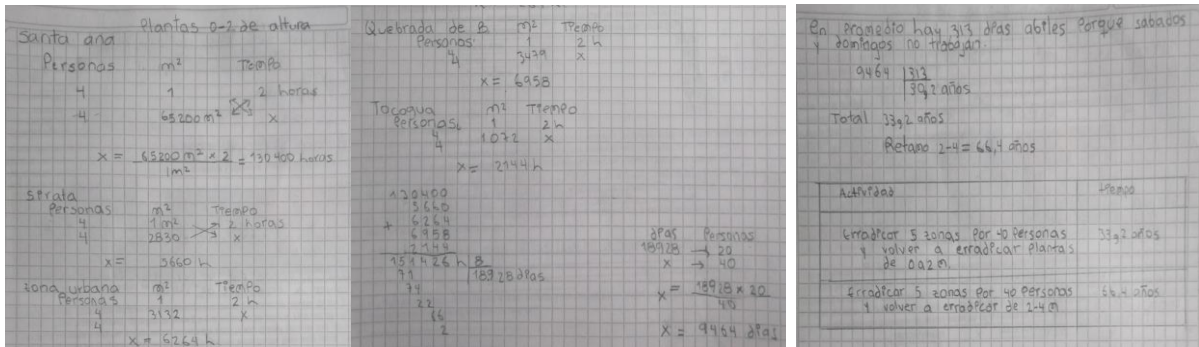 Plantas 0-2 de altura
Santa ana
Personas m² Tiempo
4 1 2 horas
4 65200 m² x
x = 65200 m² x 2 = 130400 horas
1m²
Sirata
Personas m² Tiempo
4 1m² 2 horas
4 2830 x
x = 5660 h
zona urbana
Personas m² Tiempo
4 1 2 h
4 3132 x
x = 6264 h
Quebrada de B. m² Tiempo
Personas 2 h
4 3479 x
x = 6958
Tocogua m² Tiempo
Personas 1 2 h
4 1072 x
x = 2144 h
130400
5660
+ 6264
6958
2144
151426 h 8
71 18928 dias
74
22
66
2
dias Personas
18928 → 20
x → 40
x = 18928 x 20
40
x = 9464 dias
En promedio hay 313 dias abiles Porque sabados
y domingos no trabajan.
9464 313
30,2 años
Total 33,2 años
Retamo 2-4 = 66,4 años
Actividad tiempo
Erradicar 5 zonas Por 40 Personas 33,2 años
y volver a erradicar plantas
de 0 a 2 m.
Erradicar 5 zonas Por 40 Personas 66,4 años
y volver a erradicar de 2-4 m